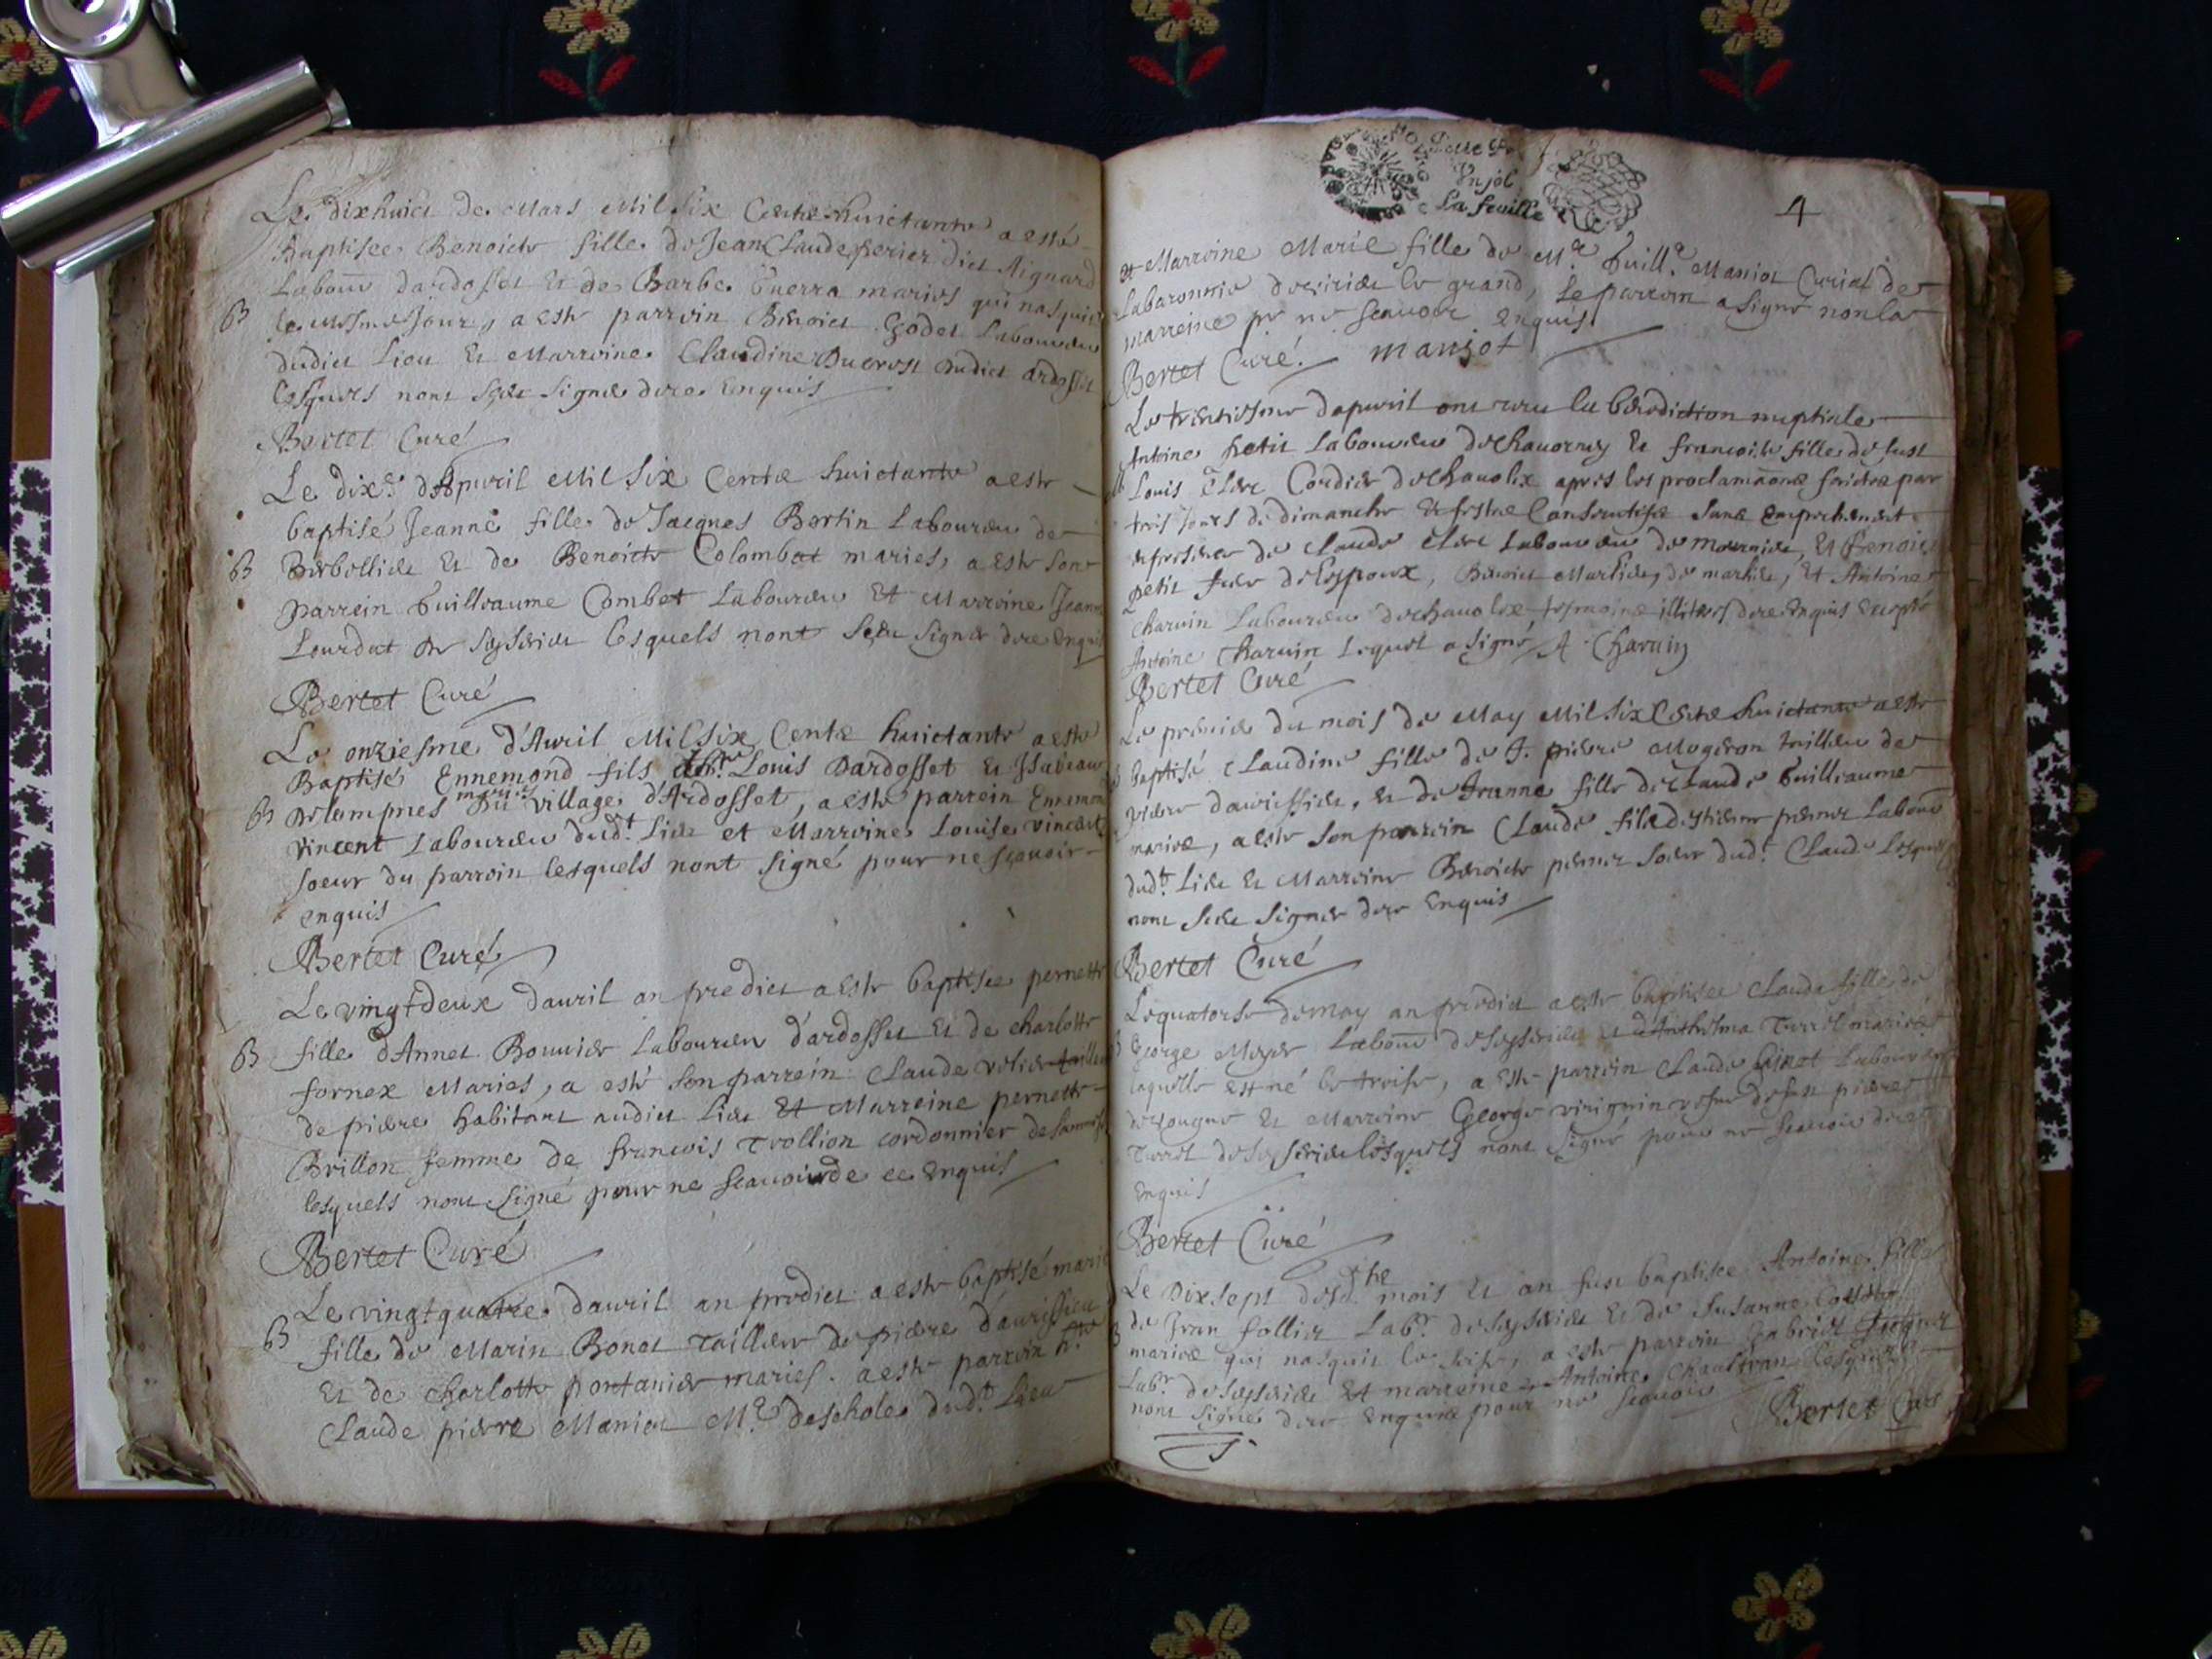 Le dixhuict de Mars Mil Six Cents huictante a esté
Baptisee Benoicte fille de Jean Claude perier dict Aignard
Labour dardosset et de Barbe Guerra maries qui nasquit
le mesme Jour, a este parroin Benoict Godet Laboureur
B
dudict Lieu et Marroine Claudine Ducrost dudict ardosset
lesquels nont sceu signer de ce enquis
Bertet Curé
Le dixe d'Apuril Mil Six Cents huictante a este
baptisé Jeanne fille de Jacques Bertin Laboureur de
B
et de Benoicte Colombat maries, a este son
parrein Guilleaume Combet Laboureur Et Marroine Jeanne
Lourdat de Seysserieu lesquels nont sceu signer de ce enquis
Bertet Curé
Le onziesme d'Avril Mil Six Cents huictante a este
Baptisé Ennemond fils Louis Dardosset et Isabeau
maries
B
Delompnes du village d'Ardosset, a este parrein Ennemond
Vincent Laboureur dudt. Lieu et Marroine Louise Vincent
soeur du parroin lesquels nont signé pour ne sçavoir
enquis
Bertet Curé
Le vingt deux davril an predict a este baptisee pernette
B
fille d'Annet Bouvier Laboureur d'ardosset et de Charlotte
fornex Maries, a esté son parrein Claude
de pierre habitant audict Lieu Et Marreine pernette
Brillon femme de francois Trollion cordonnier
lesquels nont signé pour ne scavoir de ce Enquis
Bertet Curé
Le vingt quatre davril an predict a este baptisé marie
B
fille de Marin Bonet Tailleur de pierre d'avrissieu
et de Charlotte pontanier maries. a este parroin h.te
Claude pierre Maniot Me. deschole dudt. Lieu
Dixe
Un sol
La feuille
4
et Marroine Marie fille de Me. Guille. Maniot Curial de
Labaronnie de le grand, Le parroin a signé non la
marreine pr ne scavoir enquis
Bertet Curé. manjot
Le trentiesme dapuvril ont receu la benediction nuptiale
Antoine petit Laboureur de chavornay et francoise fille de fust
Louis Clerc Cordier de chanolix apres les proclamaons faictes par
trois Jours de dimanche et festes Consecutifs sans empechement
en presence de Claude Clerc Laboureur de et Benoict
petit frere de l'espoux, Benoict Marlier, de marlieu, et Antoine
charvin Laboureur illiteres de ce enquis excepté
Antoine Charvin lequel a signé A. Charvin
Bertet Curé
Le premier du mois de May Mil Six Cents huictante a este
baptisé Claudine fille de J. pierre Mogeron tailleur de
pierre davrissieu, et de Jeanne fille de Claude Guilleaume
maries, a este son parroin Claude fils destienne Labour
dudt. Lieu et Marroine Benoicte soeur dudt. Claude lesquels
nont sceu signer de ce enquis
Bertet Curé
Le quatorse de may an predict a este baptisee Claude fille de
George Labour de Seysserieu et d'Anthelma Turrel maries
laquelle est né le treise, a este parroin Claude Laboureur
de et Marroine George virignin vefve de feu pierre
Turrel de Seysserieu lesquels nont signé pour ne scavoir de ce
enquis
Bertet Curé
Le Dixsept desd. mois et an fust baptisee Antoine fille
the
de Jean follier Labr. de Seysserieu et de Susanne
B
maries qui nasquit le seise, a este parroin Gabriel
Labr. de Seysserieu Et marreine Antoine lesquels
nont signé de ce enquis pour ne scavoir
Bertet Curé